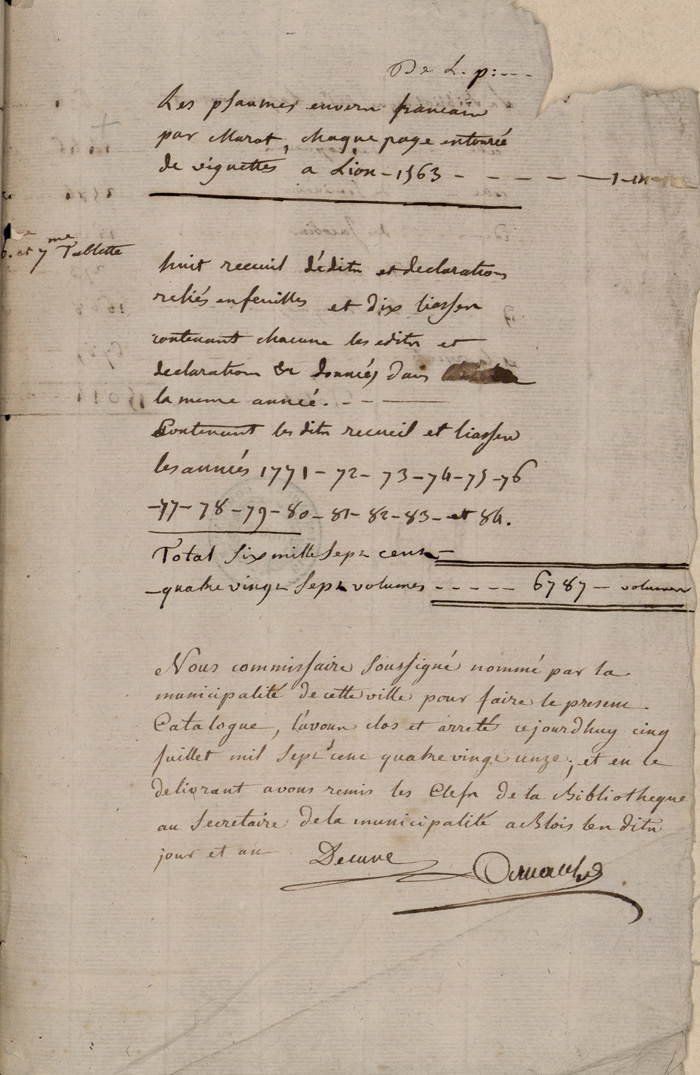 De L. p:---
Les psaumes envers francais
par Marot, chaque page entourée
de vignettes a Lion - 1563 - - - - - 1-in
6.e et 7me Tablette
huit recueil d'édits et declarations
reliés enfeuilles et dix liasses
contenant chacune les edits et
declarations &c donnés dans
la meme année. - - -
Contenant lesdits recueil et liasses
les années 1771 - 72 - 73 - 74 - 75 - 76
- 77 - 78 - 79 - 80 - 81 - 82 - 83 - et 84.
Total six mille Sept cents
quatre vingt Sept volumes - - - - - 6787 - volumes
Nous commissaire Soussigné nommé par la
municipalité de cette ville pour faire le present
Catalogue, l'avons clos et arreté cejourdhuy cinq
juillet mil Sept cent quatre vingt unze; et en le
delivrant avons remis les Clefs de la Bibliotheque
au Secretaire de la municipalité a Blois lesdits
jour et an Decuve